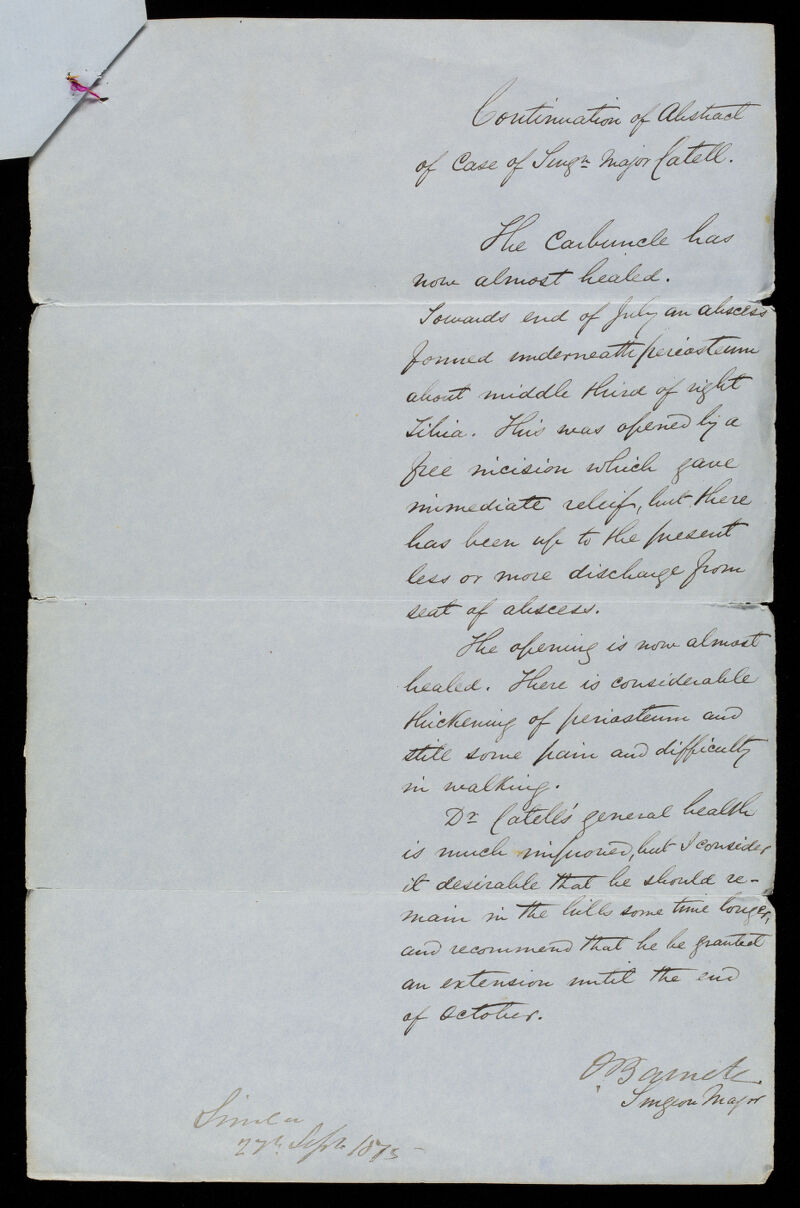 Continuation of Abstract
of Case of Surgn Major Catell.
The Carbuncle has
now almost healed.
Towards end of July an abscess
formed underneath periosteum
about middle third of right
Tibia. This was opened by a
free incision which gave
immediate releif, but there
has been up to the present
less or more discharge from
seat of abscess.
The opening is now almost
healed. There is considerable
thickening of periosteum and
still some pain and difficulty
in walking.
Dr Catell's general health
is much improved, but I consider
it desirable that he should re-
main in the hills some time longer,
and recommend that he be granted
an extension until the end
of October.
O Barnett
Surgeon Major
Simla
27th Sept 1875